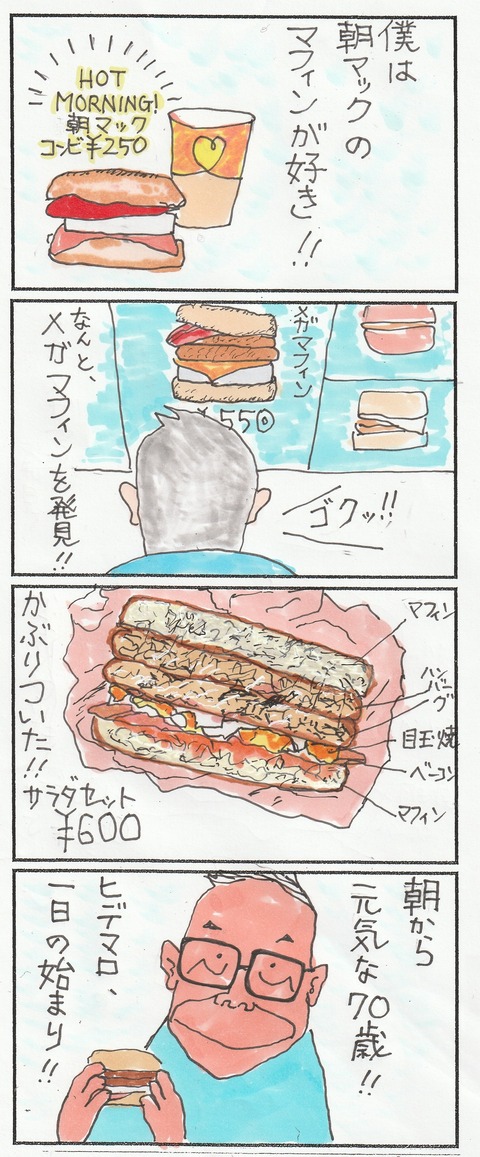 僕は
朝マックの
マフィンが好き!!
HOT
MORNING!
朝マック
コンビ¥250
メガマフィン
¥550
なんと、
メガマフィンを発見!!
ゴクッ!!
かぶりついた!!
マフィン
ハンバーグ
目玉焼
ベーコン
マフィン
サラダセット
¥600
朝から
元気な70歳!!
ヒデマロ、
一日の始まり!!